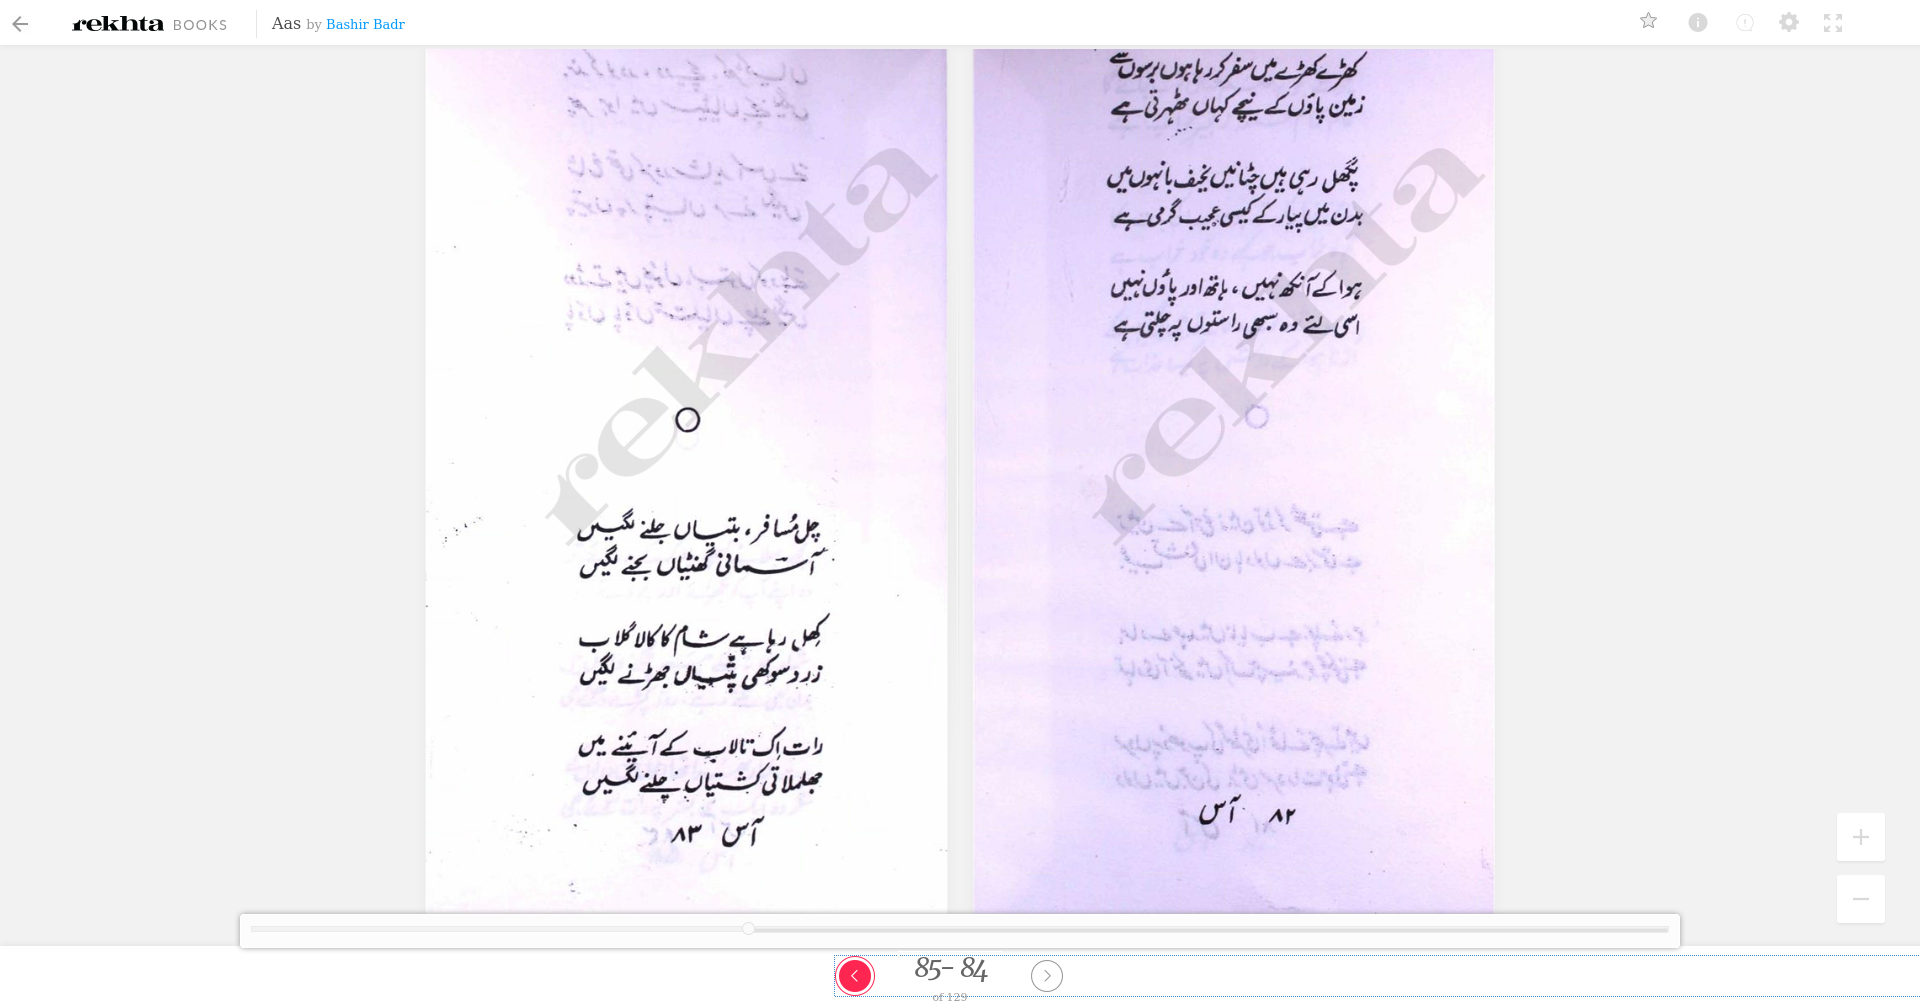 rekhta BOOKS
Aas by Bashir Badr
کھڑے کھڑے میں سفر کر رہا ہوں برسوں سے
زمین پاؤں کے نیچے کہاں ٹھہرتی ہے
پگھل رہی ہیں چٹانیں نحیف بانہوں میں
بدن میں پیار کے کیسی عجیب گرمی ہے
ہوا کے آنکھ نہیں، ہاتھ اور پاؤں نہیں
اسی لئے وہ سبھی راستوں پہ چلتی ہے
۸۲ آس
rekhta
چل مُسافر، بتیاں جلنے لگیں
آسمانی گھنٹیاں بجنے لگیں
کِھل رہا ہے شام کا کالا گلاب
زرد سوکھی پتّیاں جھڑنے لگیں
رات اِک تالاب کے آئینے میں
جھلملاتی کشتیاں چلنے لگیں
آس ۸۳
rekhta
85- 84
of 129